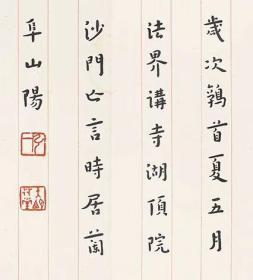 歲次鶉首夏五月
法界講寺湖頂院
沙門亡言時居蘭
阜山陽